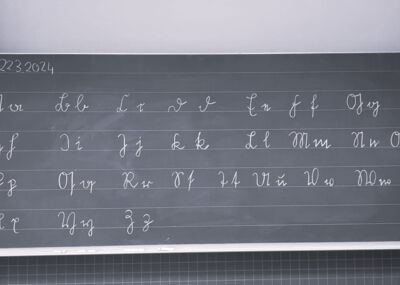 22.3.2024
A a B b C c D d E e F f G g
h I i J j K k L l M m N n O
p Q q R r S s T t U u V v W w
x Y y Z z